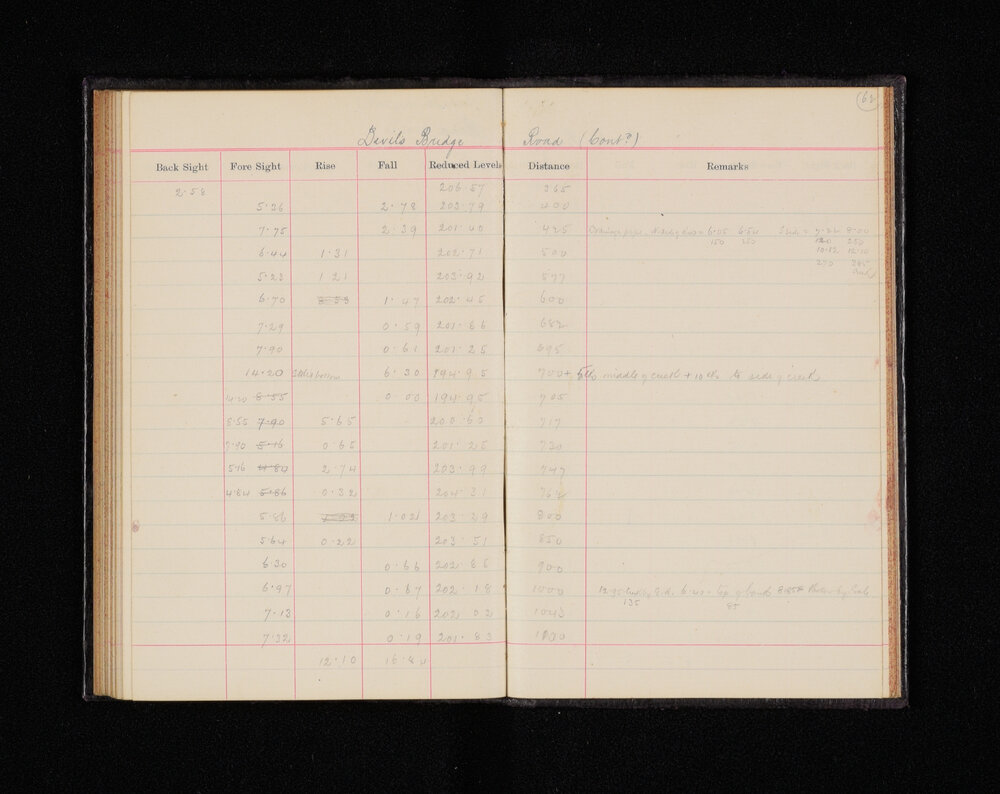 62
Devils Bridge Road (Contd)
Back Sight Fore Sight Rise Fall Reduced Levels Distance Remarks
2.58 206.57 365
5.36 2.78 203.79 400
7.75 2.39 201.40 425 6.05 6.50 7.22 8.00
150 250 120 250
6.44 1.31 202.71 500 10.12
5.23 1.21 203.92 577 270
6.70 1.47 202.45 600
7.29 0.59 201.86 682
7.90 0.61 201.25 695
14.20 6.30 194.95 700 + 5 lks middle of creek + 10 lks to side of creek
14.20 8.55 0.00 194.95 705
8.55 7.90 5.65 200.60 717
7.90 5.16 0.65 201.25 730
5.16 4.84 2.74 203.99 747
4.84 5.86 0.32 204.31 762
5.86 1.02 203.29 800
5.64 0.22 203.51 850
6.30 0.66 202.85 900
6.97 0.67 202.18 1000
135 85
7.13 0.16 202.02 1043
7.32 0.19 201.83
12.10 16.84